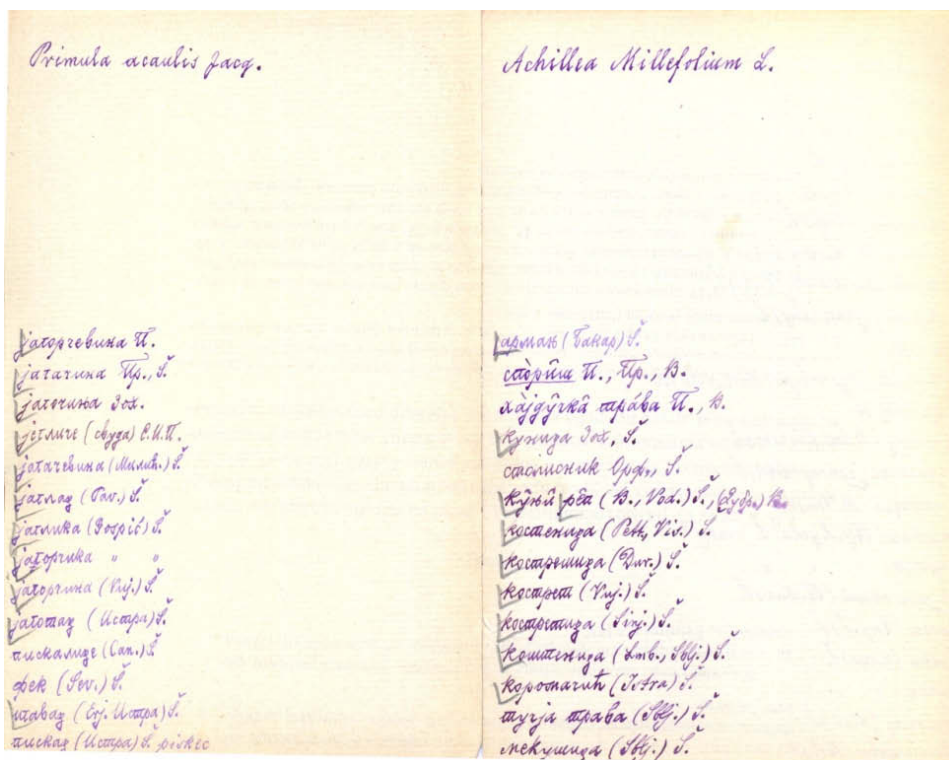 Primula acaulis Jacq.
јагорчевина П.
јагачина Пр., Š.
јагочина Зох.
јегличе (свуда) С.И.П.
јагачевина (Милић.) Š.
јаглац (Pav.) Š.
јаглика (Gospić) Š.
јагорчика " "
јагорчина (Vuj.) Š.
јаготац (Истра) Š.
пискалице (Can.) Š.
фек (Sev.) Š.
(Erj. Истра) Š.
пискац (Истра) Š. piskec
Achillea Millefolium L.
арман (Бакар) Š.
спо̀рӣш П., Пр., В.
ха̀јдӯчка̑ тра́ва П., В.
куница Зох, Š.
столисник Орф., Š.
ку̏њӣ ре̑п (В., Vod.) Š., (Дубр.) В.
костеница (Pett, Vis.) Š.
костреница (Dur.) Š.
кострет (Vuj.) Š.
костретица (Sinj.) Š.
коштеница (Lmb., Sblj.) Š.
коромачић (Istra) Š.
тучја трава (Sblj.) Š.
мекушица (Sblj.) Š.